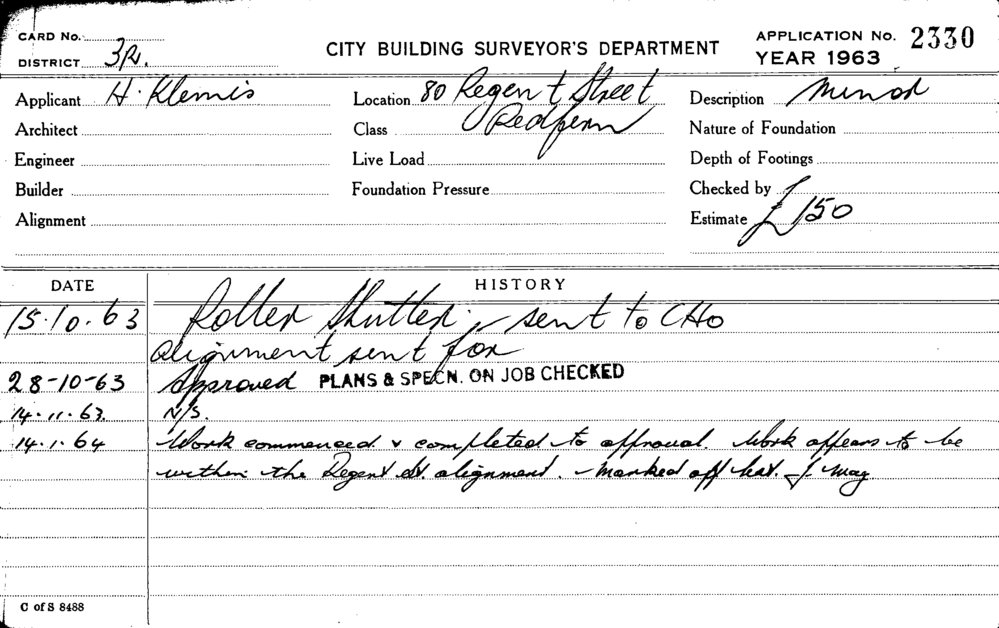 CARD No.
DISTRICT 3R.
CITY BUILDING SURVEYOR'S DEPARTMENT
APPLICATION No. 2330
YEAR 1963
Applicant H. Klemis
Location 80 Regent Street
Redfern
Description Minor
Architect
Class
Nature of Foundation
Engineer
Live Load
Depth of Footings
Builder
Foundation Pressure
Checked by
Alignment
Estimate £150
DATE HISTORY
15.10.63 Roller Shutter. - sent to CHO
alignment sent for
28-10-63 Approved PLANS & SPECN. ON JOB CHECKED
14.11.63. N/S.
14.1.64 Work commenced & completed to approval. Work appears to be
within the Regent St. alignment. - Marked off J. May
C of S 8488